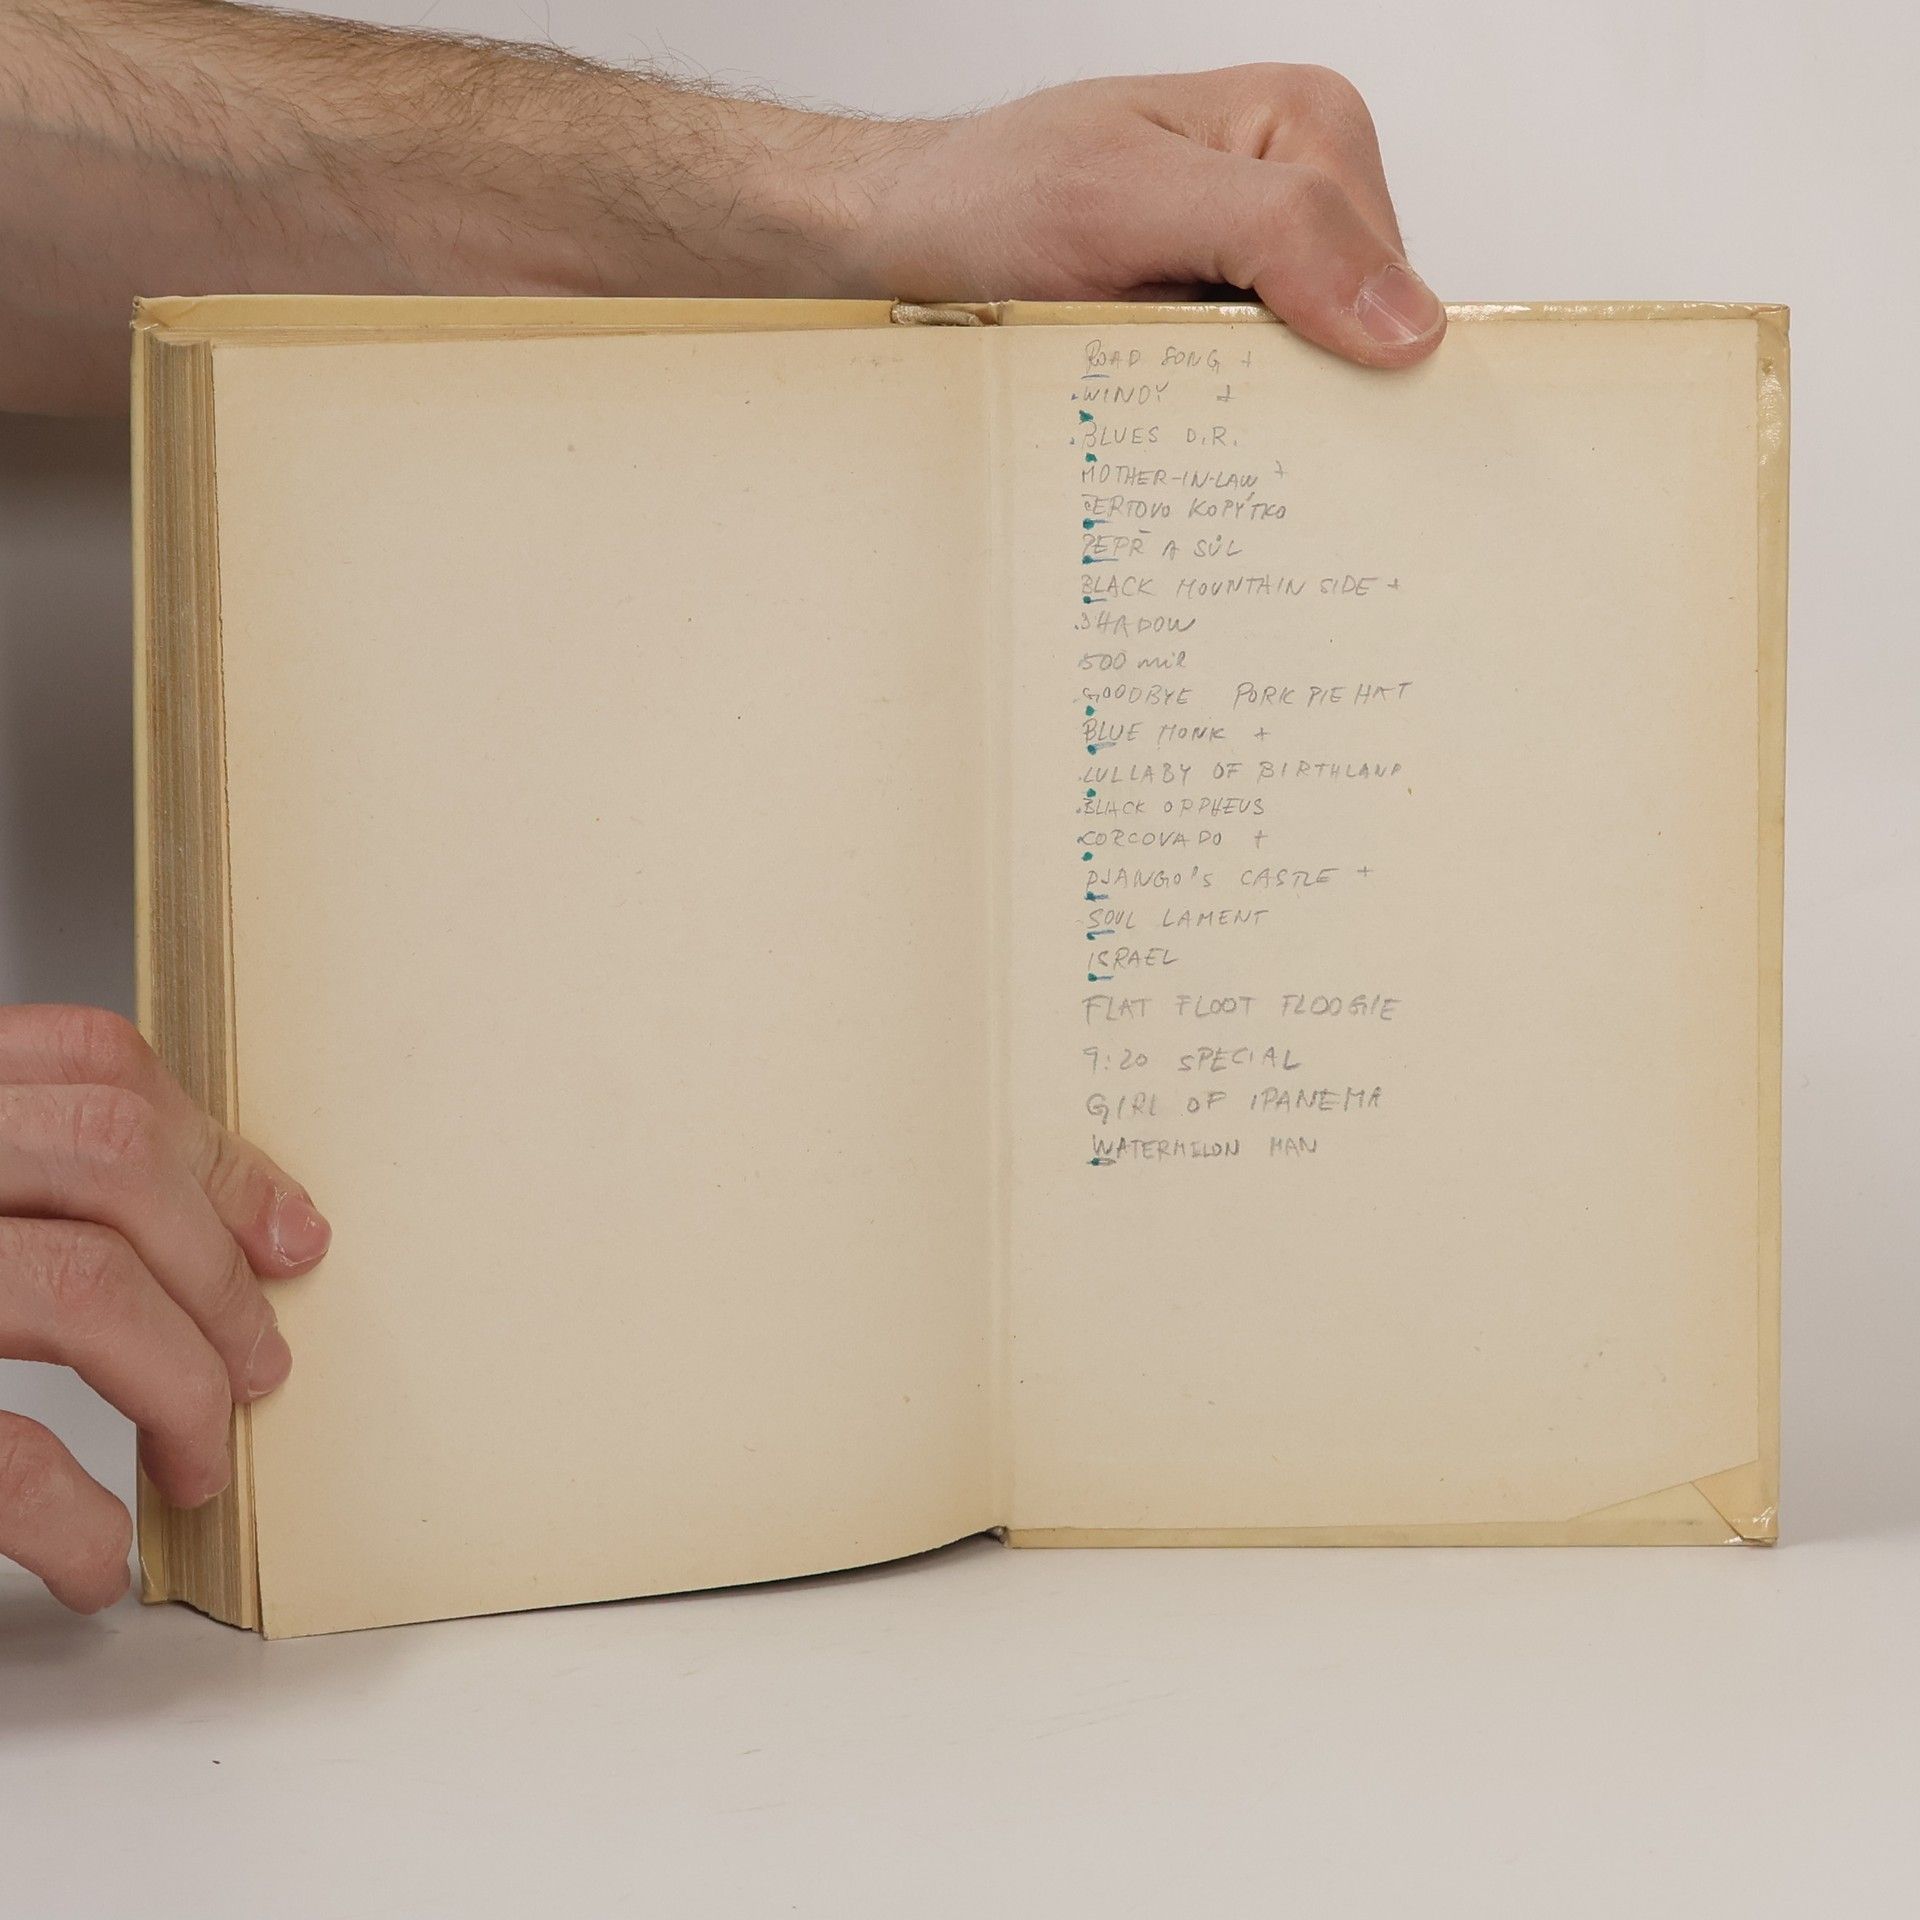 ROAD SONG +
WINDY +
BLUES D.R.
MOTHER-IN-LAW +
ČERTOVO KOPÝTKO
PEPŘ A SŮL
BLACK MOUNTAIN SIDE +
SHADOW
500 mil
GOODBYE PORK PIE HAT
BLUE MONK +
LULLABY OF BIRTHLAND
BLACK ORPHEUS
CORCOVADO +
DJANGO'S CASTLE +
SOUL LAMENT
ISRAEL
FLAT FLOOT FLOOGIE
9:20 SPECIAL
GIRL OF IPANEMA
WATERMILON MAN